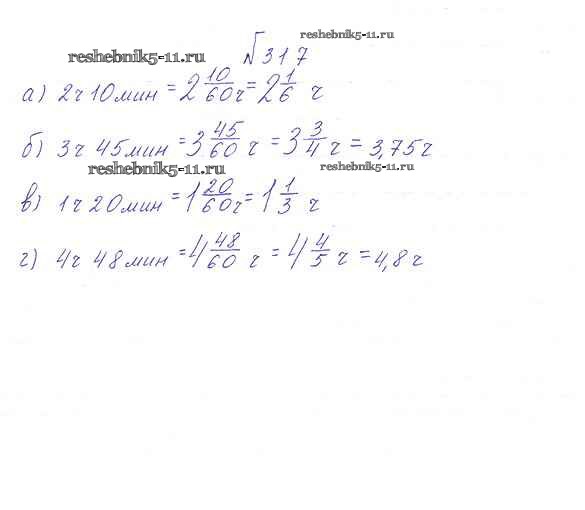 reshebnik5-11.ru
reshebnik5-11.ru √317
а) 2ч 10мин = 2 10/60 ч = 2 1/6 ч
б) 3ч 45мин = 3 45/60 ч = 3 3/4 ч = 3,75ч
reshebnik5-11.ru reshebnik5-11.ru
в) 1ч 20мин = 1 20/60 ч = 1 1/3 ч
г) 4ч 48мин = 4 48/60 ч = 4 4/5 ч = 4,8ч